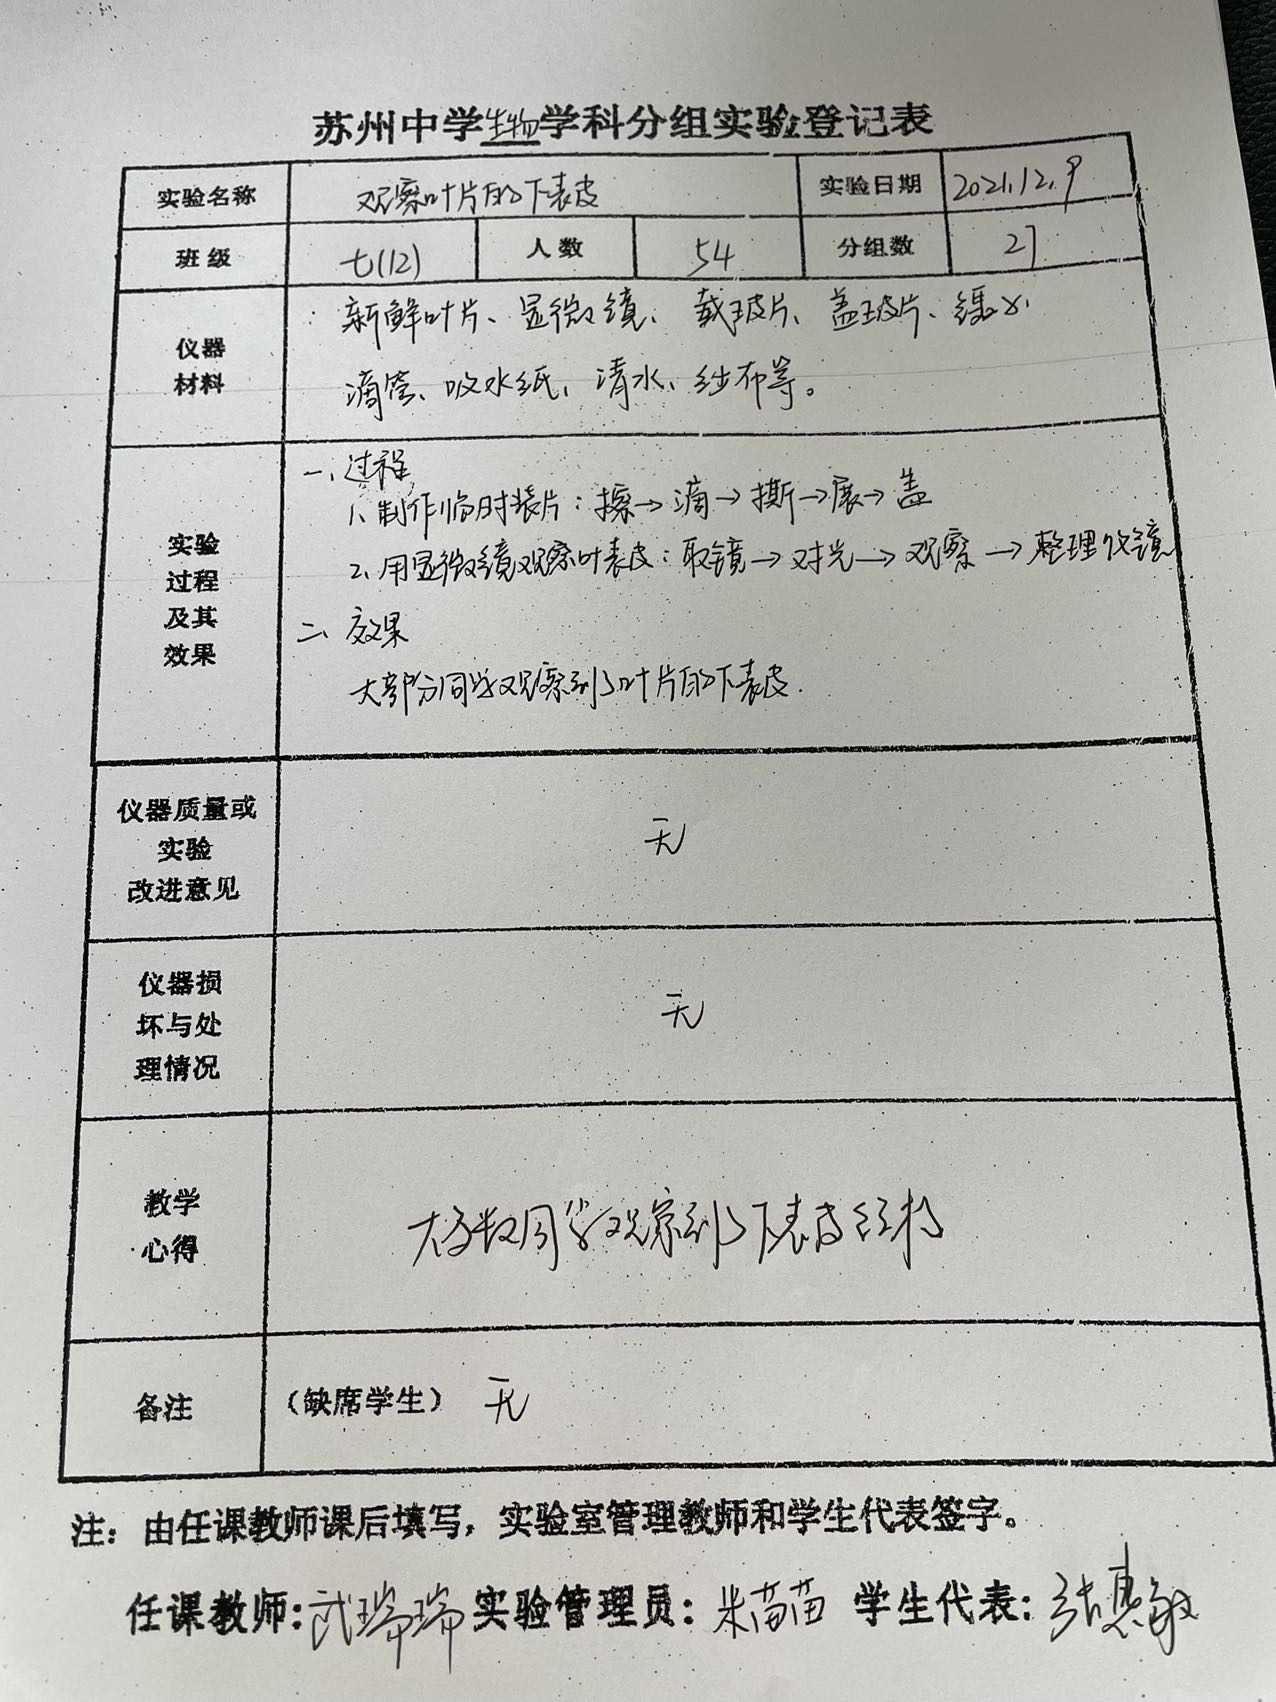 苏州中学生物学科分组实验登记表
实验名称 观察叶片的下表皮 实验日期 2021.12.9
班级 七(12) 人数 54 分组数 27
仪器材料 新鲜叶片、显微镜、载玻片、盖玻片、镊子
滴管、吸水纸、清水、纱布等。
实验过程及其效果
一、过程
1、制作临时装片：擦→滴→撕→展→盖
2、用显微镜观察叶表皮：取镜→对光→观察→整理收镜
二、效果
大部分同学观察到了叶片的下表皮.
仪器质量或实验改进意见 无
仪器损坏与处理情况 无
教学心得 大多数同学观察到了下表皮结构
备注 （缺席学生） 无
注：由任课教师课后填写，实验室管理教师和学生代表签字。
任课教师: 武瑞瑞 实验管理员: 米苗苗 学生代表: 张惠敏